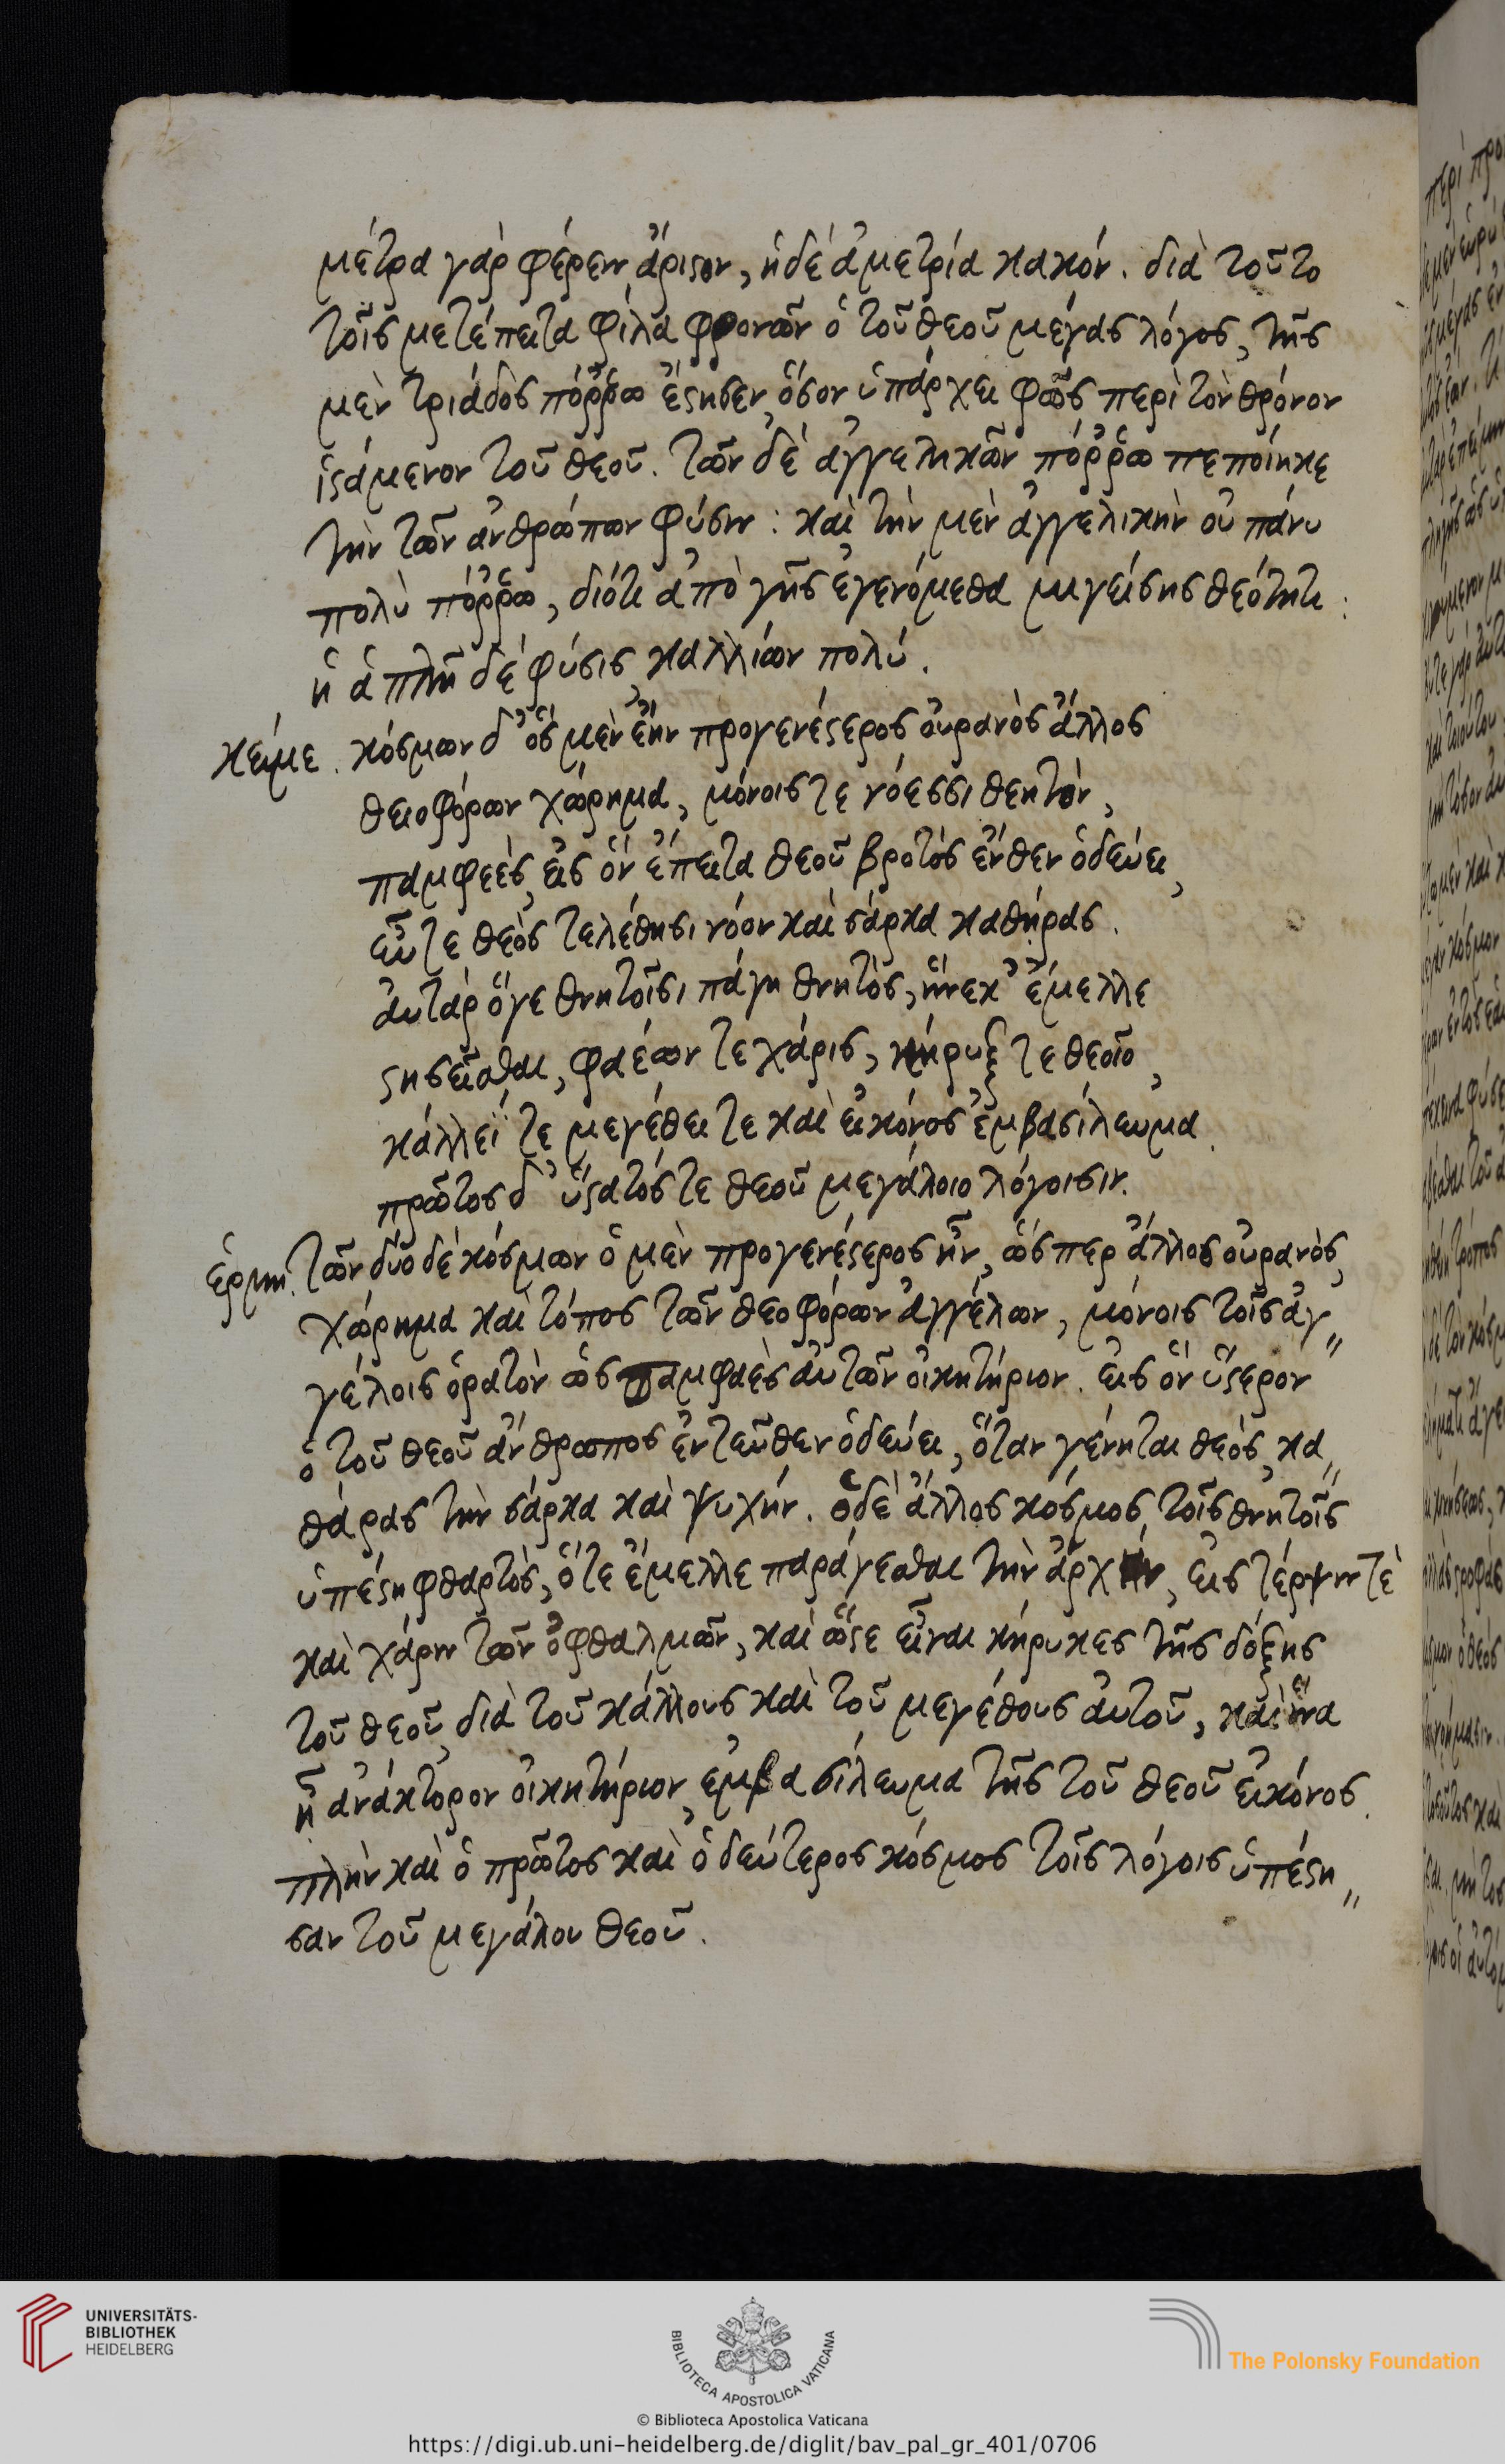 μέτρα γὰρ φέρειν ἄριστον, ἡ δὲ ἀμετρία κακόν. διὰ τοῦτο
τοῖς μετέπειτα φίλα φρονῶν ὁ τοῦ θεοῦ μέγας λόγος, τῆς
μὲν τριάδος πόῤῥω ἔστησεν, ὅσον ὑπάρχει φῶς περὶ τὸν θρόνον
ἱστάμενον τοῦ θεοῦ. τῶν δὲ ἀγγελικῶν πόῤῥω πεποίηκε
τὴν τῶν ἀνθρώπων φύσιν : καὶ τὴν μὲν ἀγγελικὴν οὐ πάνυ
πολὺ πόῤῥω, διότι ἀπὸ γῆς ἐγενόμεθα μιγείσης θεότητι :
ἡ ἁπλῆ δὲ φύσις καλλίων πολύ.
κείμε. κόσμων δ' ὃς μὲν ἔην προγενέστερος οὐρανὸς ἄλλος
θειοφόρων χώρημα, μόνοις τε νόεσσι θεητὸν,
παμφεὲς, εἰς ὃν ἔπειτα θεοῦ βροτὸς ἔνθεν ὁδεύει,
εὖτε θεὸς τελέθησι νόον καὶ σάρκα καθήρας.
αὐτὰρ ὅγε θνητοῖσι πάγη θνητὸς, ἥνεκ' ἔμελλε
στησεῖσθαι, φαέων τε χάρις, κήρυξ τε θεοῖο,
κάλλεΐ τε μεγέθει τε καὶ εἰκόνος ἐμβασίλευμα.
πρῶτος δ' ὕστατός τε θεοῦ μεγάλοιο λόγοισιν.
ἑρμη. τῶν δύο δὲ κόσμων ὁ μὲν προγενέστερος ἦν, ὥσπερ ἄλλος οὐρανὸς,
χώρημα καὶ τόπος τῶν θεοφόρων ἀγγέλων, μόνοις τοῖς ἀγ„
γέλοις ὁρατὸν ὡς παμφαὲς αὐτῶν οἰκητήριον. εἰς ὃν ὕστερον
ὁ τοῦ θεοῦ ἄνθρωπος ἐντεῦθεν ὁδεύει, ὅταν γένηται θεὸς, κα„
θάρας τὴν σάρκα καὶ ψυχήν. ὁ δὲ ἄλλος κόσμος, τοῖς θνητοῖς
ὑπέστη φθαρτὸς, ὅτε ἔμελλε παράγεσθαι τὴν ἀρχὴν, εἰς τέρψιν τὲ
καὶ χάριν τῶν ὀφθαλμῶν, καὶ ὥστε εἶναι κήρυκες τῆς δόξης
τοῦ θεοῦ, διὰ τοῦ κάλλους καὶ τοῦ μεγέθους αὐτοῦ, καὶ ἵνα
ᾖ ἀνάκτορον οἰκητήριον, ἐμβασίλευμα τῆς τοῦ θεοῦ εἰκόνος.
πλὴν καὶ ὁ πρῶτος καὶ ὁ δεύτερος κόσμος τοῖς λόγοις ὑπέστη„
σαν τοῦ μεγάλου θεοῦ.
UNIVERSITÄTS-
BIBLIOTHEK
HEIDELBERG
BIBLIOTECA APOSTOLICA VATICANA
The Polonsky Foundation
© Biblioteca Apostolica Vaticana
https://digi.ub.uni-heidelberg.de/diglit/bav_pal_gr_401/0706